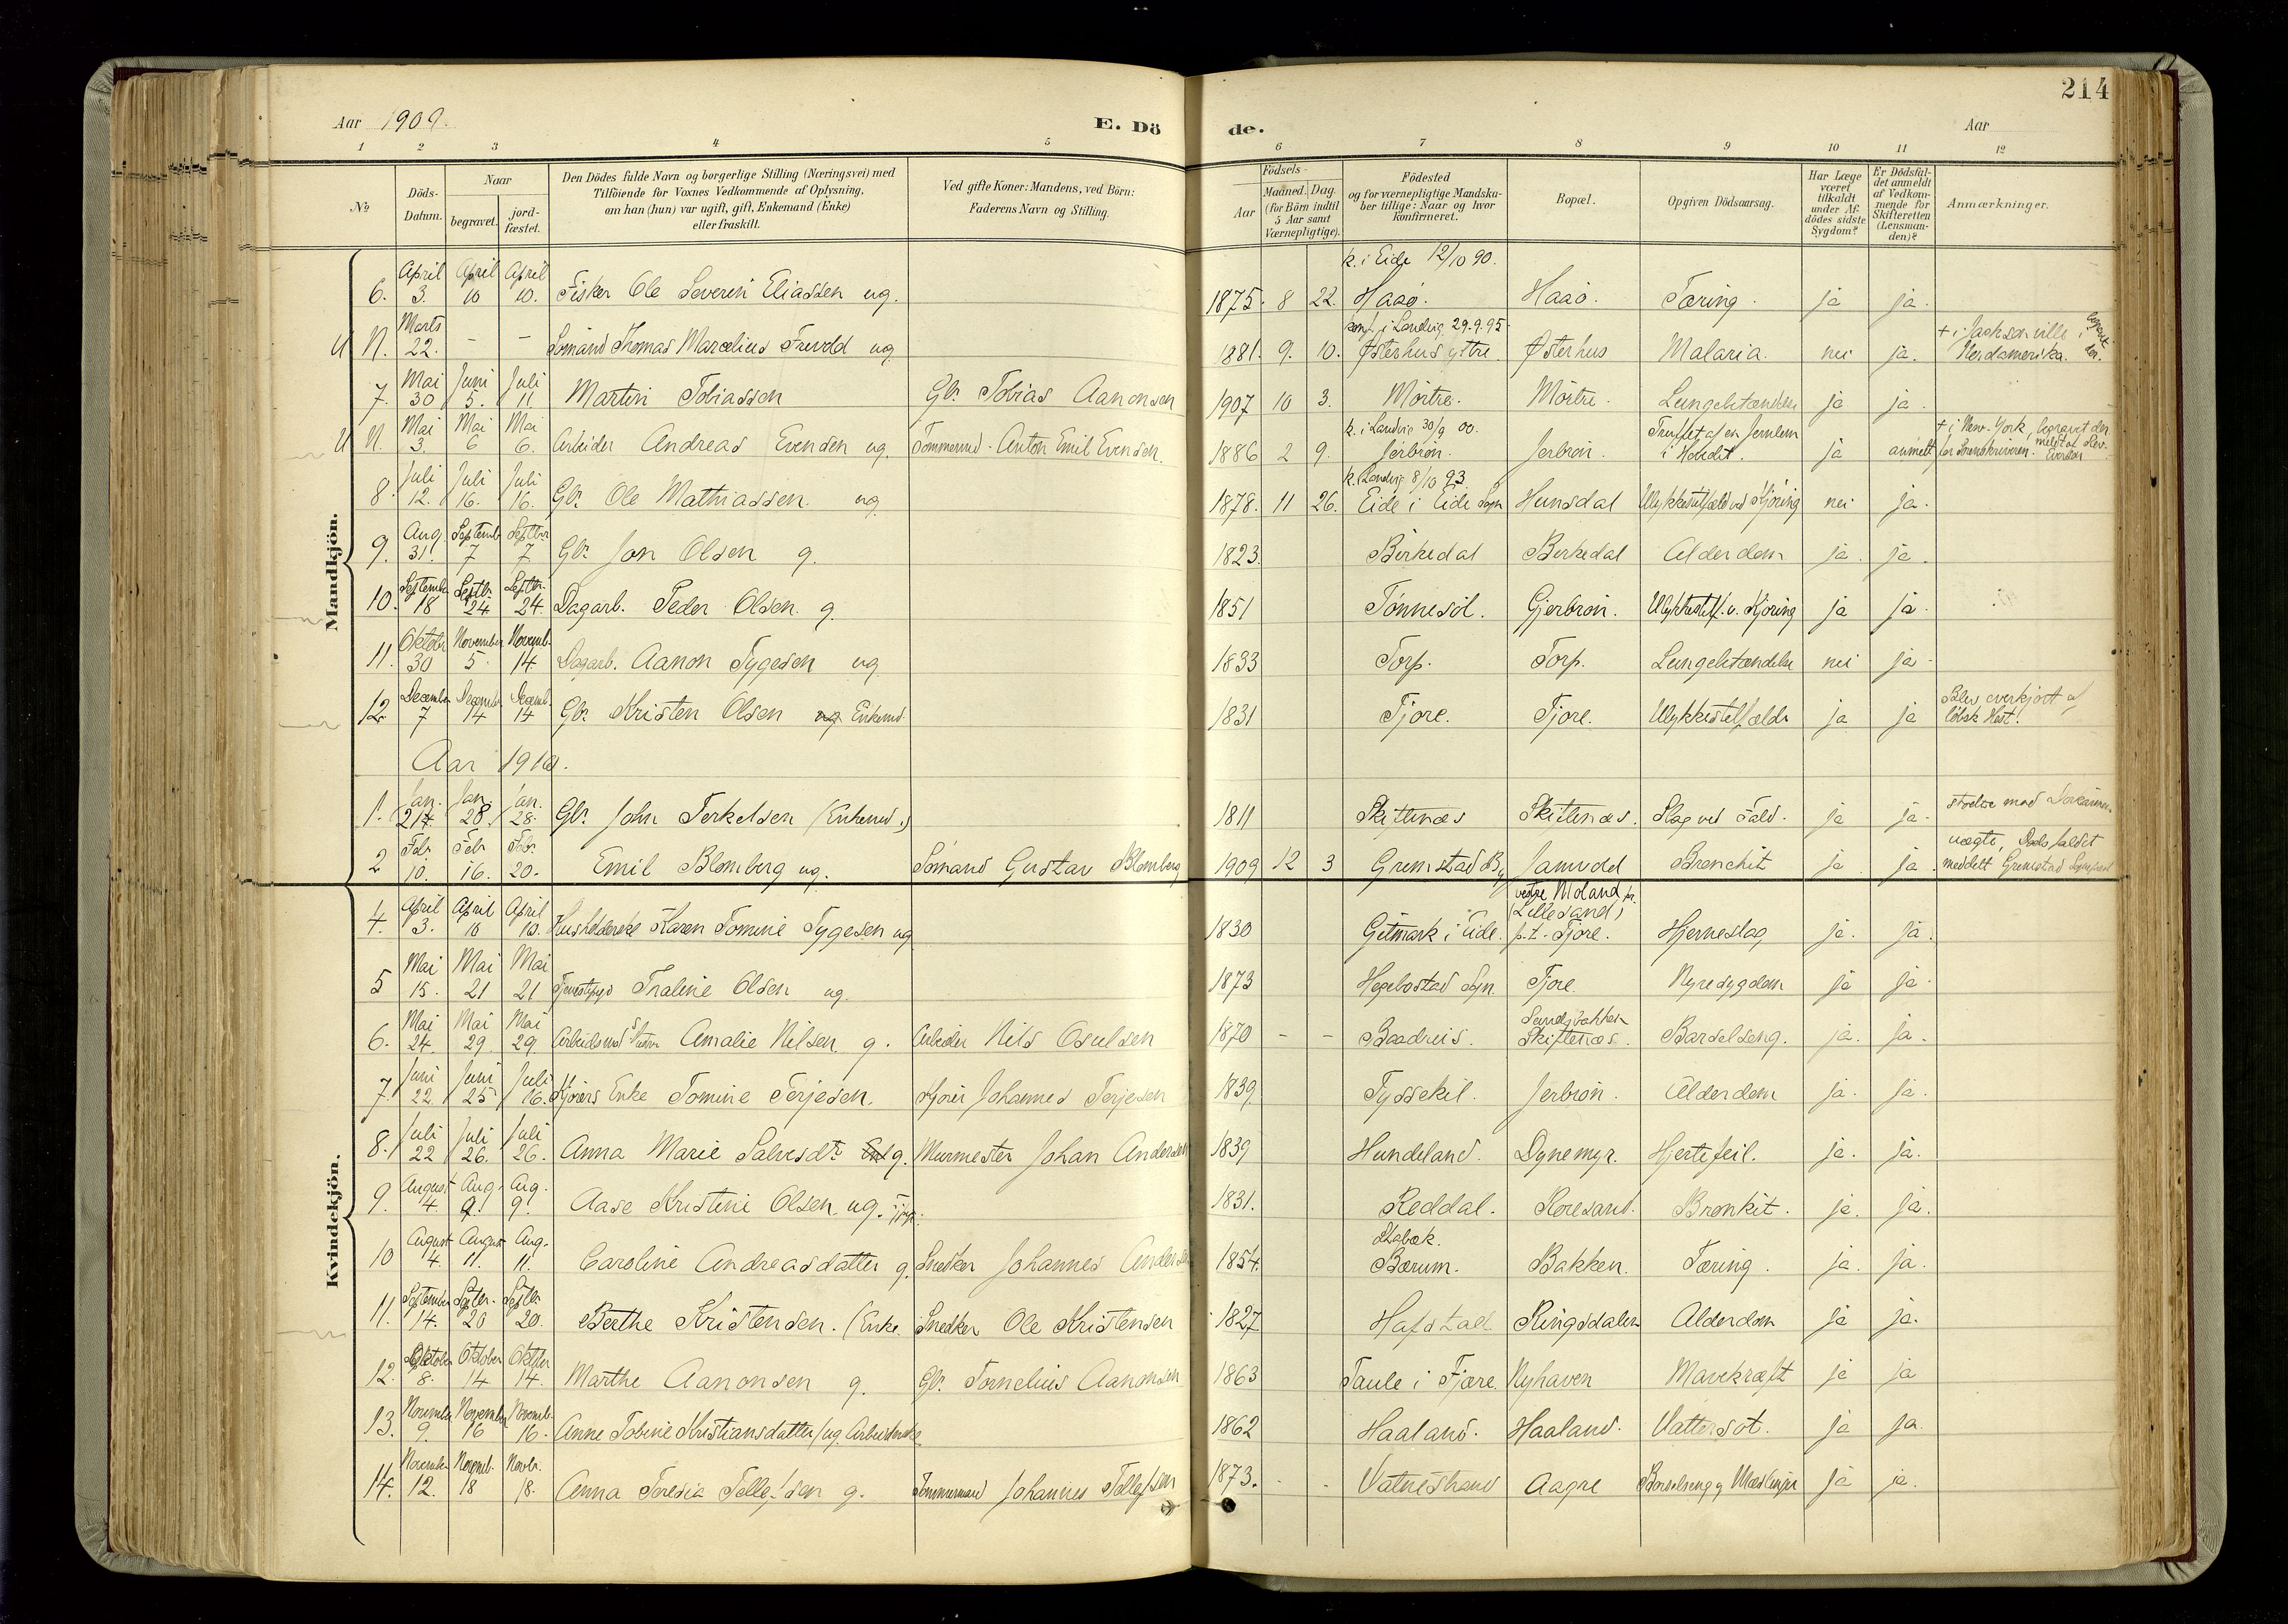 214
Aar 1909. E. Dö de. Aar
1 2 3 4 5 6 7 8 9 10 11 12
№ Döds-Datum. Naar begravet. jord-fæstet. Den Dödes fulde Navn og borgerlige Stilling (Næringsvei) med Tilföiende for Voxnes Vedkommende af Oplysning, om han (hun) var ugift, gift, Enkemand (Enke) eller fraskilt. Ved gifte Koner: Mandens, ved Börn: Faderens Navn og Stilling. Födsels- Aar Maaned. Dag. (for Börn indtil 5 Aar samt Værnepligtige). Födested og for værnepligtige Mandska-ber tillige: Naar og hvor konfirmeret. Bopæl. Opgiven Dödsaarsag. Har Læge været tilkaldt under Af-dödes sidste Sygdom? Er Dödsfal-det anmeldt af Vedkom-mende for Skifteretten (Lensman-den)? Anmærkninger.
Mandkjön.
6. April 3. April 10 April 10. Fisker Ole Severin Eliassen ug. 1875. 8 22. k. i Eide 12/10 90. Haaø. Haaø. Tæring. ja ja.
U N. Marts 22. - - Sømand Thomas Marcelius Frevold ug 1881. 9. 10. konf. i Landvig 29.9.95 Østerhus yttre. Østerhus Malaria. nei ja. + i Jacksonville i Nordamerika.
7. Mai 30 Juni 5. Juli 11 Martin Tobiassen Gbr. Tobias Aanonsen 1907 10 3. Mörtre. Mörtre. Lungebetændelse ja ja.
U N. Mai 3. Mai 6 Mai 6. Arbeider Andreas Evensen ug. Tømmermd. Anton Emil Evensen. 1886 2 9. k. i Landvig 30/9 00. Jerbrøn. Jerbrøn. Truffet af en Jernlem i Hodet. ja anmeldt for Sorenskriveren. + i New-York, begravet der
8. Juli 12. Juli 16. Juli 16. Gbr. Ole Mathiassen. ug 1878. 11 26. k. Landvig 8/10 93. Eide i Eide Sogn Hunsdal Ulykkestilfæld ved Kjöring nei ja.
9. Aug. 31. Septemb 7 Septbr 7 Gbr. Jon Olsen g. 1823. Birkedal Birkedal Alderdom ja. ja.
10. September 18 Septbr. 24 Septbr. 24 Dagarb. Peder Olsen. g. 1851 Tönnesöl. Gjerbrøn. Ulykkestilf. v. Kjöring ja ja.
11. Oktober 30 November 5. Novemb. 14 Dagarb. Aanon Tygesen ug 1833 Torp. Torp. Lungebetændelse nei ja.
12. December 7 Decemb. 14 Decemb. 14 Gbr. Kristen Olsen ug Enkemd. 1831 Fjøre. Fjøre. Ulykkestilfælde ja ja Blev overkjørt af løbsk Hest!
Aar 1910.
1. Jan. 21 Jan. 28. Jan. 28. Gbr. John Terkelsen (Enkemd.) 1811 Skiftenæs Skiftenæs. Slag ved Fald. ja ja.
2 Febr. 10. Febr. 16. Febr. 20. Emil Blomberg ug. Sømand Gustav Blomberg 1909 12 3 Grimstad By Jamvold Bronchit ja ja. uægte, Dødsfaldet meddelt Grimstad
Kvindekjön.
4. April 3. April 10 April 10. Husholderske Karen Tomine Tygesen ug 1830 Gitmark i Eide. vestre Moland pr. (Lillesand) p.t. Fjøre. Hjerneslag ja. ja.
5 Mai 15. Mai 21 Mai 21 Tjenestepige Thaline Olsen ug. 1873 Hegebostad Sgn. Fjøre. Nyresygdom ja ja.
6. Mai 24. Mai 29. Mai 29. Arbeidsmds Hustru Amalie Nilsen g. Arbeider Nils Osulsen 1870 - - Baadreis. Sandsbakken Skiftenæs. Barselseng. ja. ja.
7. Juni 22. Juni 25 Juli 16. Kjørers Enke Tomine Terjesen. Kjører Johannes Terjesen 1839. Tyssekil. Jerbrøn. Alderdom ja. ja.
8. Juli 22 Juli 26. Juli 26. Anna Marie Salvesdtr. g. Murmester Johan Andersen 1839 Hundeland. Dynemyr. Hjertefeil. ja. ja.
9. August 4. Aug. 9. Aug. 9. Aase Kristine Olsen. ug. 1831. Reddal. Roresand. Bronkit. ja. ja.
10 August 4. August 11. Aug. 11. Caroline Andreasdatter g. Snedker Johannes Andersen 1854. Stabæk. Bærum. Bakken. Tæring. ja. ja.
11. September 14. Septbr. 20 Septbr. 20. Berthe Kristensen. (Enke. Snedker Ole Kristensen 1827 Hafstad Ringsdalen Alderdom ja ja.
12. Oktober 8. Oktober 14 Oktober 14. Marthe Aanonsen g. Gbr. Tornelius Aanonsen 1863 Taule i Fjære. Nyhaven Mavekræft ja ja
13. November 9. November 16 Novemb. 16. Anne Tobine Kristiansdatter ug. Arbeiderske 1862 Haaland. Haaland. Vattersot. ja ja.
14. November 12. Novemb. 18 Novbr. 18. Anna Teresia Tellefsen g. Tømmermand Johannes Tellefsen 1873. - - Vatnestrand Aagre Barselseng og Mæslinger ja ja.